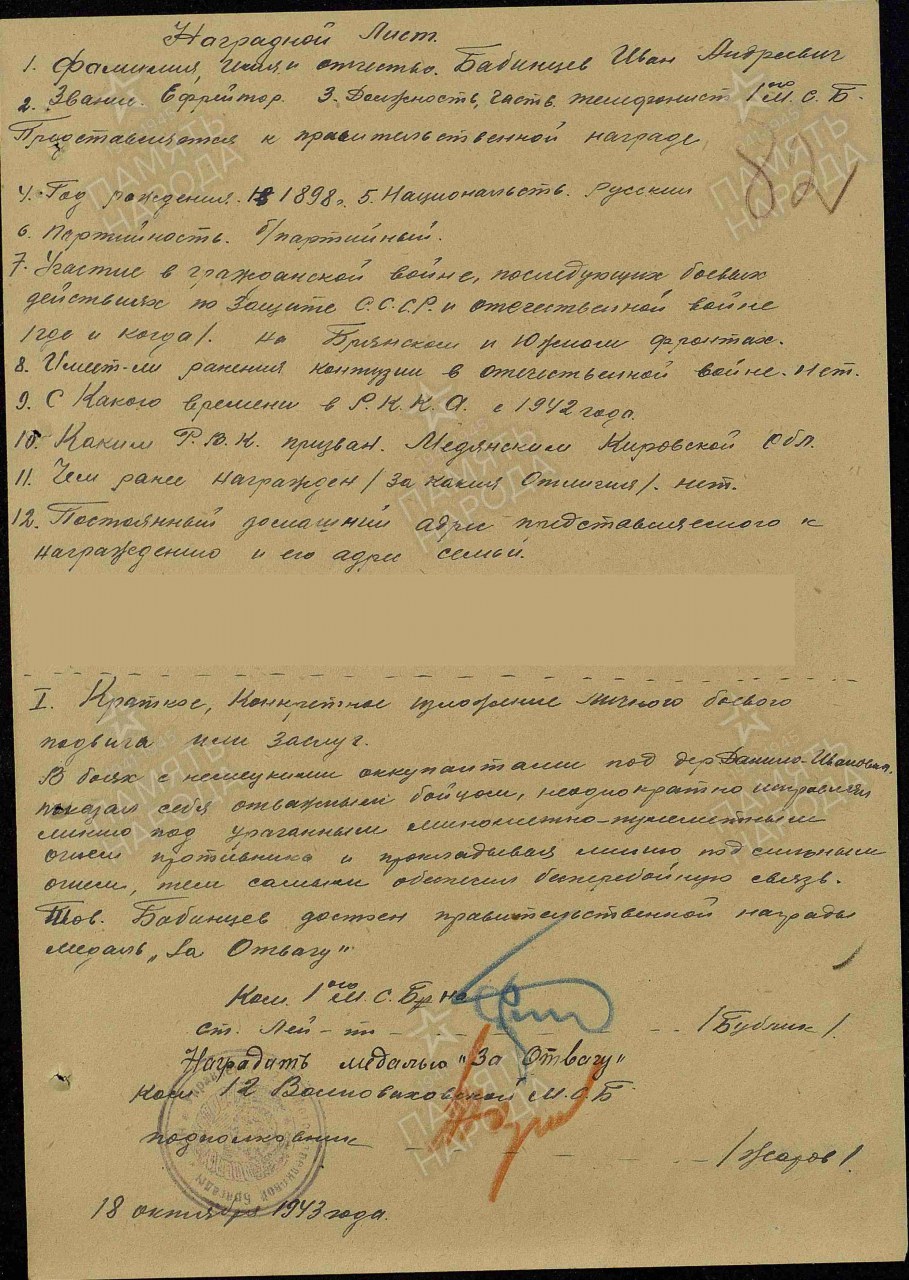 Наградной Лист.
1. Фамилия, Имя и отчество. Бабинцев Иван Андреевич
2. Звание. Ефрейтор. 3. Должность, часть. телефонист 1ого М.С.Б.
Представляется к правительственной награде
82
4. Год рождения. 1898г. 5. Национальств. русский
6. Партийность. б/партийный.
7. Участие в гражданской войне, последующих боевых
действиях по Защите С.С.С.Р. и отечественной войне
/где и когда/. на Брянском и Южном фронтах.
8. Имеет-ли ранения контузии в отечественной войне. Нет.
9. С Какого времени в Р.К.К.А. с 1942 года.
10. Каким Р.В.К. призван. Медянским Кировской Обл.
11. Чем ранее награжден /за какия Отличия/. нет.
12. Постоянный домашний адрес представляемого к
награждению и его адрес семьи.
I. Краткое, Конкретное изложение личного боевого
подвига или заслуг.
В боях с немецкими оккупантами под дер Данило-Ивановка.
показал себя отважным бойцом, неоднократно исправлял
линию под ураганным минометно-пулеметным
огнем противника и прокладывая линию под сильным
огнем, тем самым обеспечил бесперебойную связь.
Тов. Бабинцев достоен правительственной награды
медаль „За Отвагу"
Ком. 1ого М.С.Б-на
ст. Лей-т /Бублик/.
Наградить медалью "За Отвагу"
Ком 12 Волновахской М.С.Б
подполковник /Жаров/.
18 октября 1943 года.
ПАМЯТЬ НАРОДА